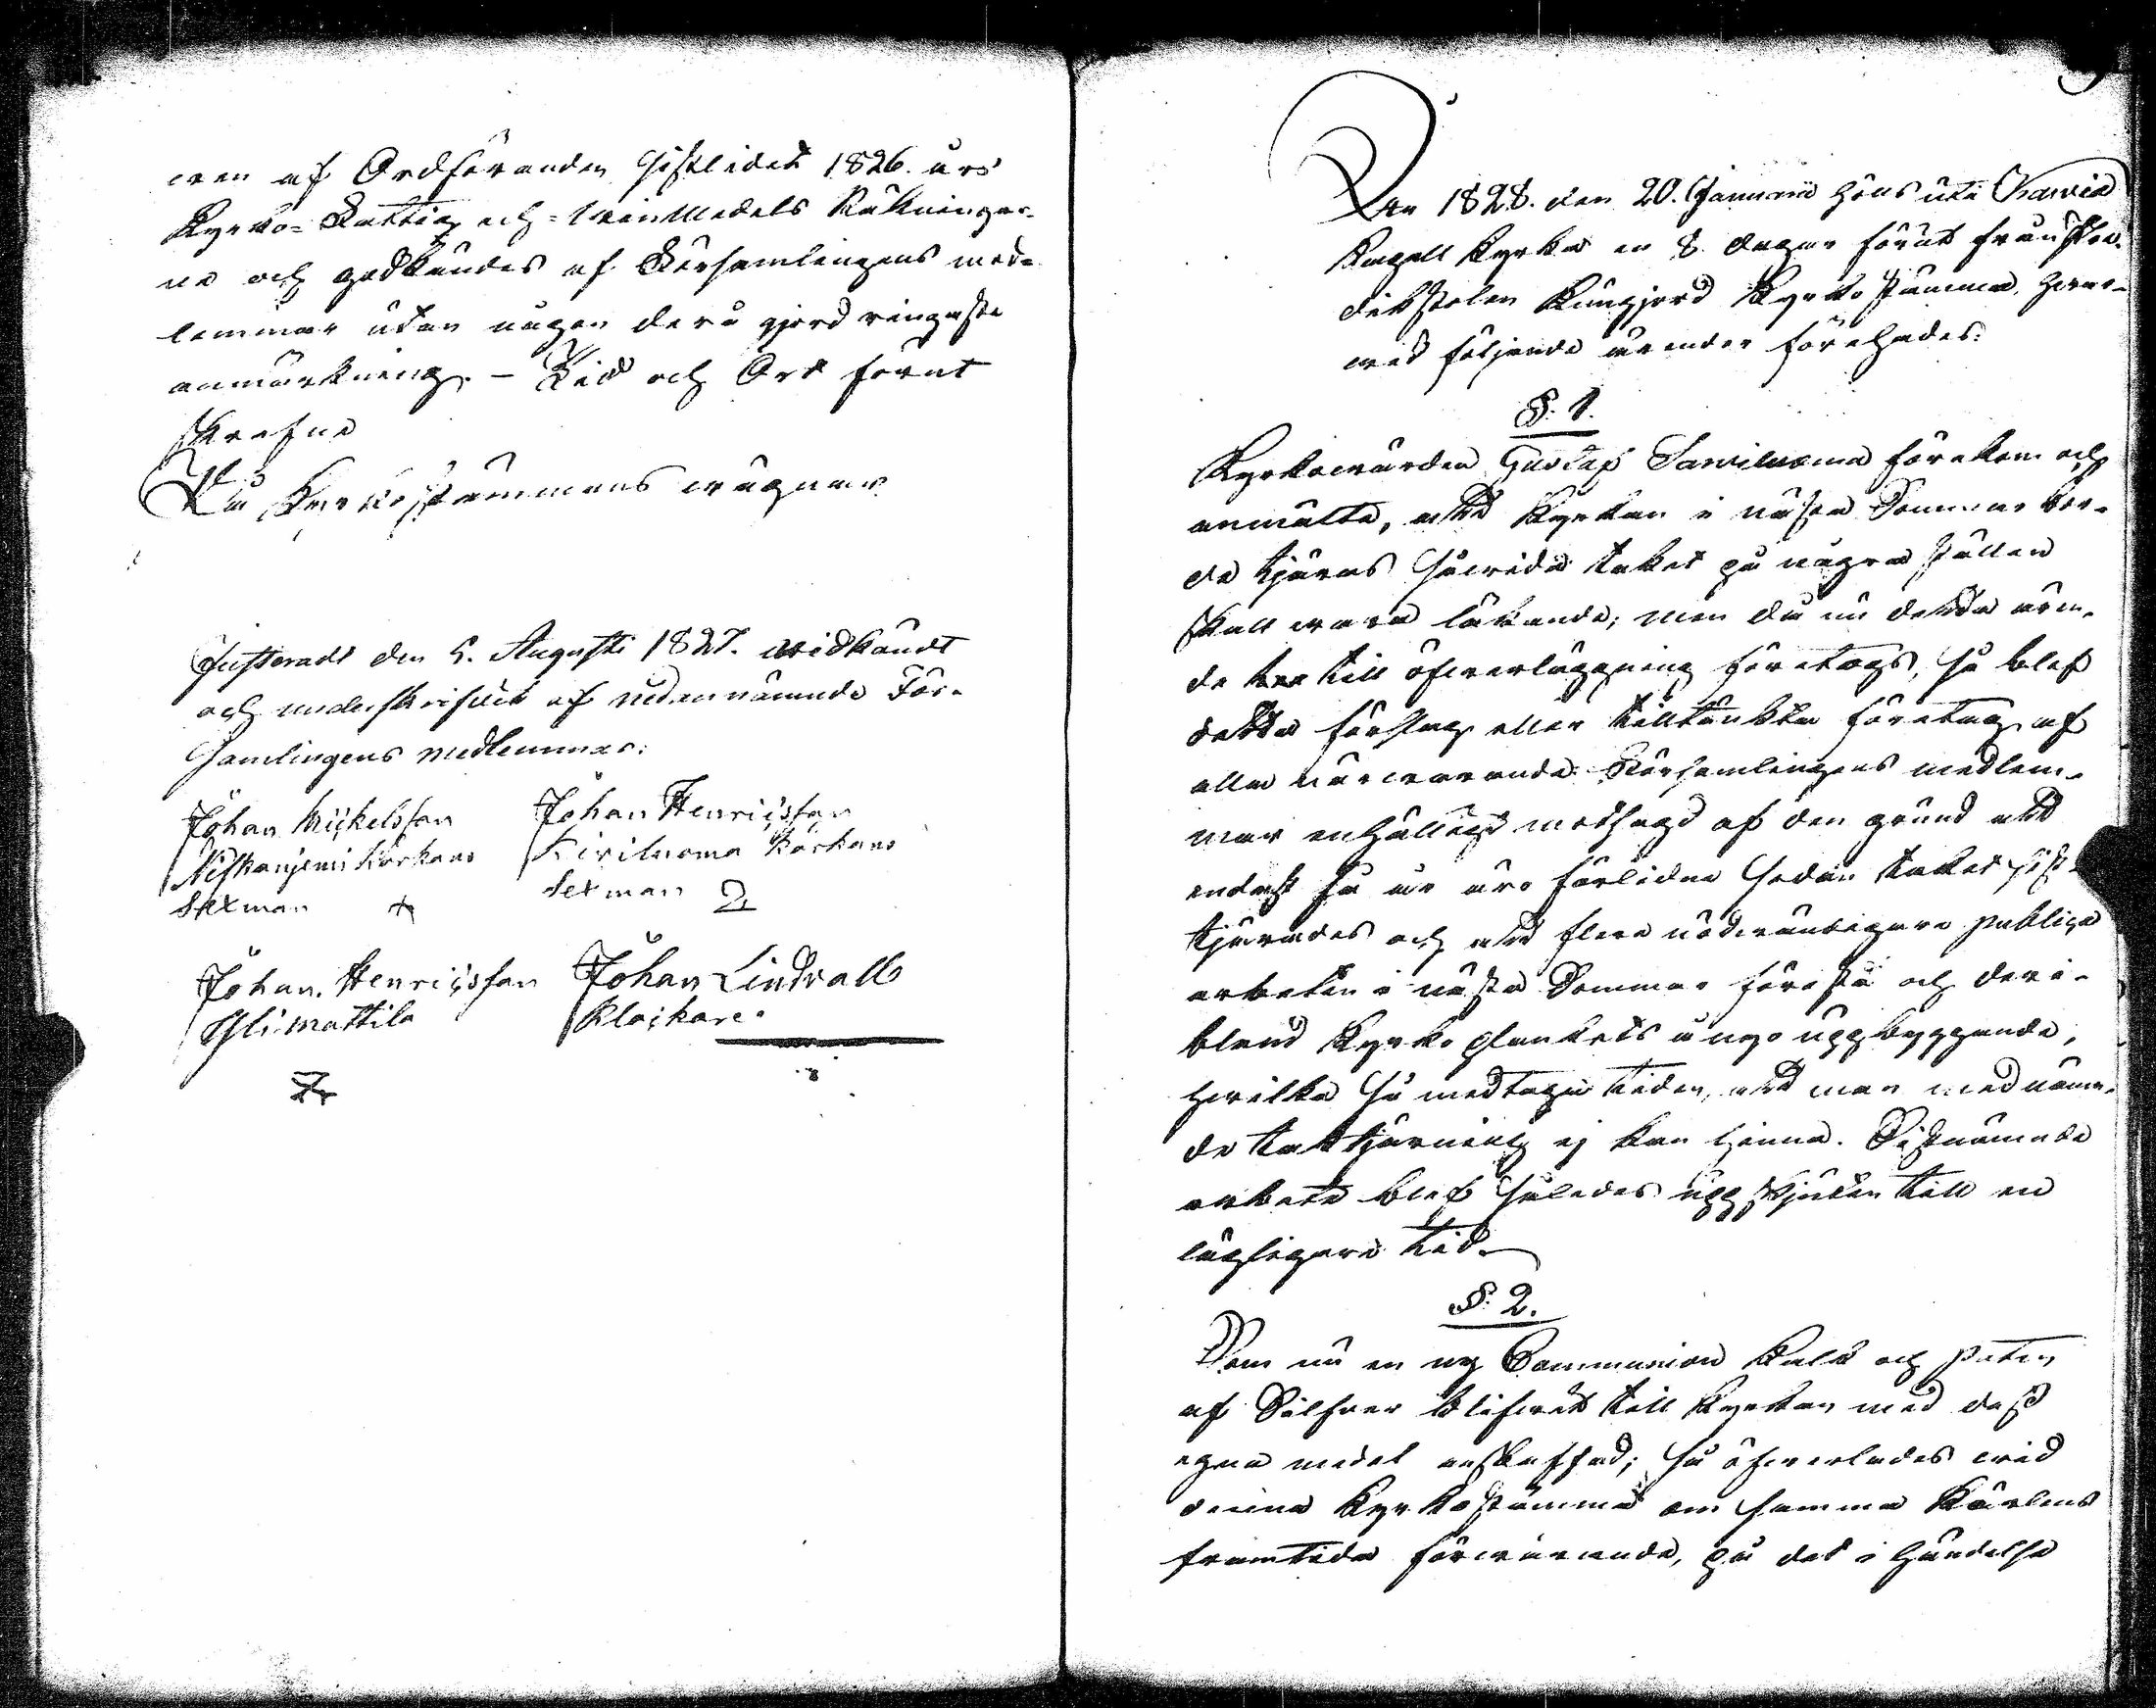 wen af Ordföranden sistlidet 1826. års
Kyrko- Fattig och = Vin Medels Räkningar-
ne och godkändes af Församlingens med-
lemmar utan någon derå gjord ringaste
anmärkning. – Tid och Ort förut
skrefne
På Kyrkostämmans wägnar
Justeradt den 5. Augusti 1827. widkändt
och underskrifwit af nedannämnde För-
samlingens medlemmar:
Johan Michelsson
Niskanjemi Korkano
Sexman
Johan Henricsson
Kiriluoma Korkano
Sexman
Johan Henricsson
Yli-Mattila
Johan Lindvall
Klockare.
År 1828. den 20. Januarii höls uti Karvia
Kapell Kyrka en 8 dagar förut från Pre-
dikstolen kungjord Kyrko stämma, hwar-
wid följande ärender förehades:
§. 1.
Kyrkowärden Gustaf Sawiluoma förekom och
anmälte, att Kyrkan i nästa Sommar bor-
de tjäras såwida taket på några ställen
skall wara läkande; men då nu detta ären-
de till öfwerläggning företogs, så blef
detta förslag eller tilltänkta företag af
alla närwarande Församlingens medlem-
mar enhälligt motsagd af den grund att
endast få år äro förlidne sedan taket sist
tjärades och att flere nödwändigare publica
arbeten i nästa Sommar förestå och der i-
bland Kyrko plankets å nyo uppbyggande,
hwilka så medtaga tiden, att man med nämn-
de taktjärning ej kan hinna. Sistnämnde
arbete blef således uppskjuten till en
lägligare tid.
§. 2.
Som nu en ny Communion Kalk och paten
af Silfwer blifwit till Kyrkan med dess
egna medel anskaffad; så öfwerlades wid
denna Kyrkostämma om samma Kärlens
framtida förwarande, på det i händelse